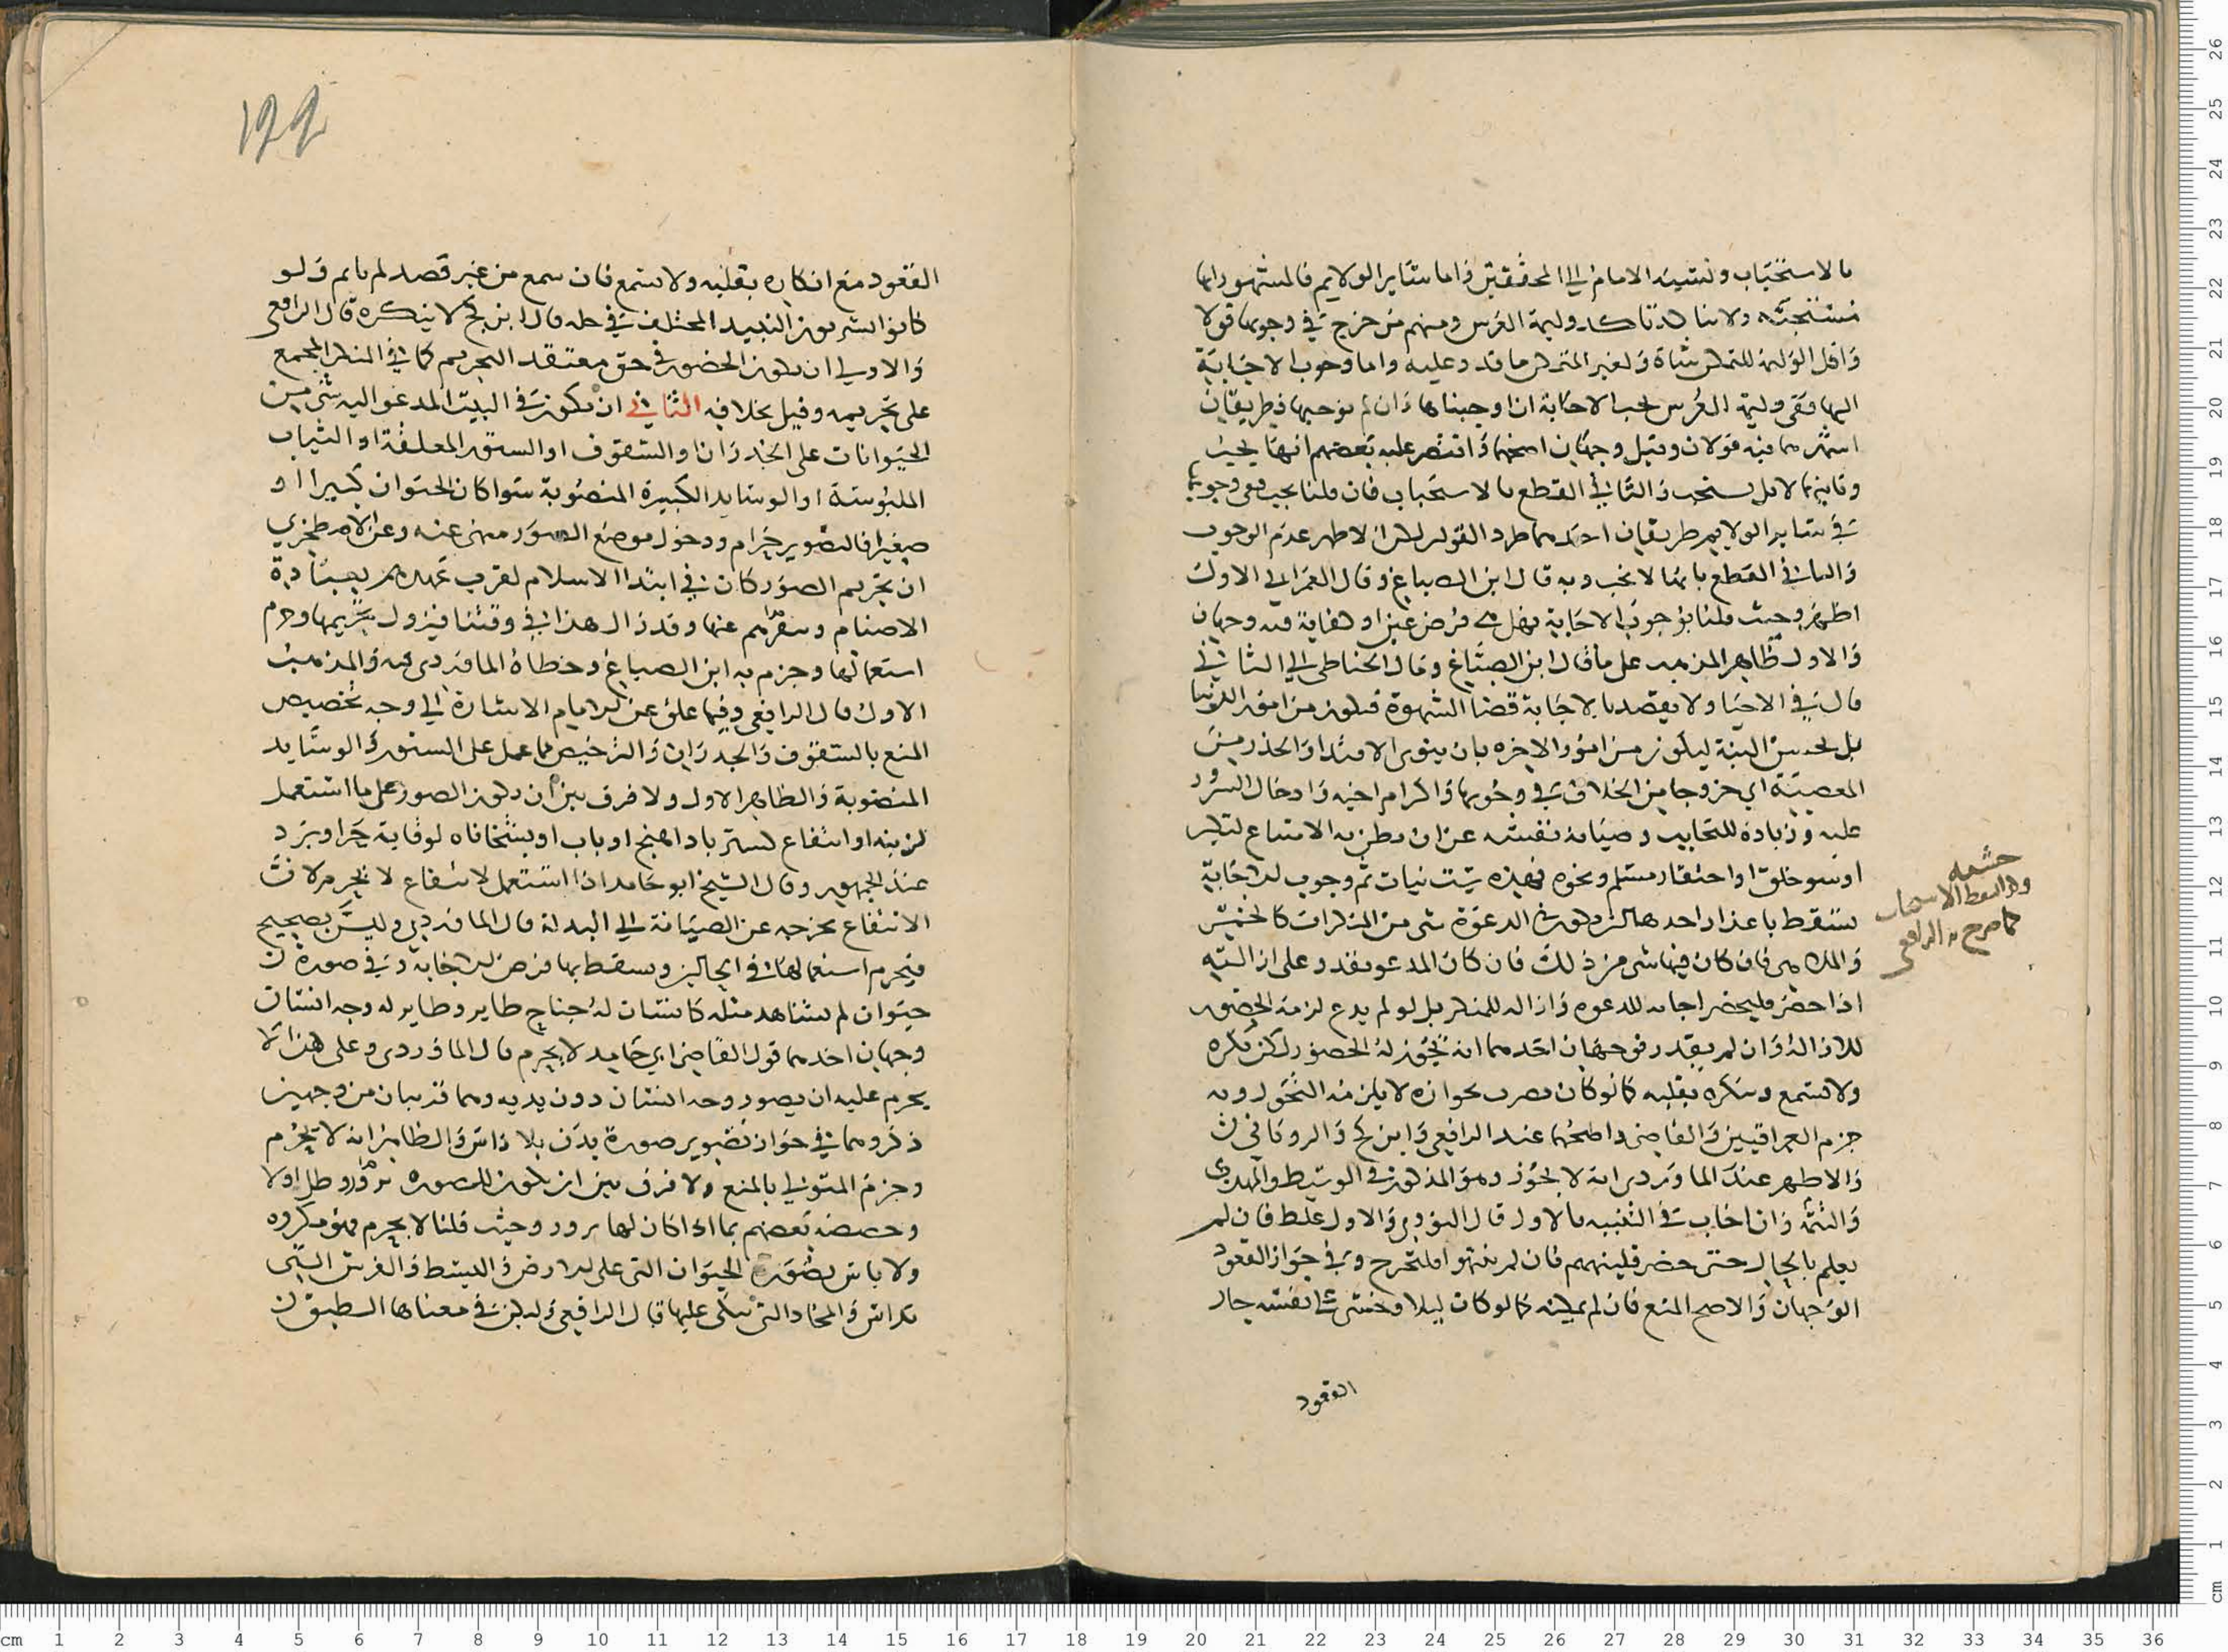 بالاستحباب ونسبه الامام الي المحققين واما ساير الولايم فالمشهور انها
مستحبه ولا تتاكد تاكد وليمة العرس ومنهم من خرج في وجوبها قولا
واقل الوليمة للمتمكن شاة ولغير المتمكن ما قدر عليه واما وجوب الاجابة
اليها ففي وليمة العرس تجب الاجابة ان اوجبناها وان لم نوجبها فطريقان
اشهرهما فيه قولان وقيل وجهان اصحهما واقتصر عليه بعضهم انها تجب
وثانيهما لا بل تستحب والثاني القطع بالاستحباب فان قلنا يجب ففي وجوبها
في ساير الولايم طريقان احدهما طرد القولين لكن الاظهر عدم الوجوب
والثاني القطع بانها لا تجب وبه قال ابن الصباغ وقال العمراني الاول
اظهر وحيث قلنا بوجوب الاجابة فهل هي فرض عين او كفاية فيه وجهان
والاول ظاهر المذهب على ما قال ابن الصباغ ومال الحناطي الي الثاني
قال في الاحيا ولا يقصد بالاجابة قضا الشهوة فيكون من امور الدنيا
بل يحسن النية ليكون من امور الاخره بان ينوي الاقتدا والحذر من
المعصية اي خروجا من الخلاف في وجوبها واكرام اخيه وادخال السرور
عليه وزيادة للتحابب وصيانة نفسه عن ان يظن به الامتناع لتكبر
او سو خلق او احتقار مسلم ونحوه فهذه ست نيات ثم وجوب الاجابة
يسقط باعذار احدها ان يكون في الدعوة شي من المنكرات كالخمر
والملاهي فان كان فيها شي من ذلك فان كان المدعو يقدر على ازالته
اذا حضر فليحضر اجابه للدعوه وازاله للمنكر بل لو لم يدع لزمه الحضور
للازالة وان لم يقدر فوجهان احدهما انه يجوز له الحضور لكن يكره
ولا يستمع وينكره بقلبه كما لو كان يضرب بجواره لا يلزمه التحول وبه
جزم العراقيين والقاضي واصحهما عند الرافعي وابن كج والروياني
والاظهر عند الماوردي انه لا يجوز وهو المذكور في الوسيط والمهذب
والتتمه وان اجاب في التنبيه بالاول قال النووي والاول غلط فان لم
يعلم بالحال حتى حضر فلينههم فان لم ينتهوا فليخرج وفي جواز القعود
الوجهان والاصح المنع فان لم يمكنه كما لو كان ليلا وخشي على نفسه جاز
القعود
حشمه
وهذا سقط الاستحباب
كما صرح به الرافعي
١٩٩
القعود مع انكاره بقلبه ولا يستمع فان سمع من غير قصد لم ياثم ولو
كانوا يشربون النبيذ المختلف في حله قال ابن كج لا ينكره قال الرافعي
والاولي ان يكون الحضور في حق معتقد التحريم كما في المنكر المجمع
على تحريمه وقيل بخلافه الثاني ان يكون في البيت المدعو اليه شي من
الحيوانات على الجدران او السقوف او الستور المعلقة او الثياب
الملبوسة او الوسايد الكبيرة المنصوبة سوا كان الحيوان كبيرا او
صغيرا فالتصوير حرام ودخول موضع الصور منهي عنه وعن الاصطخري
ان تحريم الصور كان في ابتدا الاسلام لقرب عهدهم بعبادة
الاصنام وسفرهم عنها وقد زال هذا في وقتنا فيزول تحريمها وحرم
استعمالها وجزم به ابن الصباغ وخطاه الماوردي فيه والمذهب
الاول قال الرافعي وفيما علق عن الامام الاشارة الي وجه تخصيص
المنع بالسقوف والجدران والترخيص مما عمل على الستور والوسايد
المنصوبة والظاهر الاول ولا فرق بين ان يكون الصور على ما استعمل
لزينه او انتفاع لستر باداهنج او باب او بشخاناه لوقاية حر او برد
عند الجمهور وقال الشيخ ابو حامد اذا استعمل لانتفاع لا يحرم لان
الانتفاع يخرجه عن الصيانة الي البدلة قال الماوردي وليس بصحيح
فيحرم استعمالها في الحالين ويسقط بها فرض الاجابة وفي صورة
حيوان لم يشاهد مثله كانسان له جناح طاير وطاير له وجه انسان
وجهان احدهما قول القاضي ابي حامد لا يحرم قال الماوردي وعلى هذا لا
يحرم عليه ان يصور وجه انسان دون بدنه وهما قريبان من وجهين
ذكروهما في جواز تصوير صورة بدن بلا راس والظاهر انه لا يحرم
وجزم المتولي بالمنع ولا فرق بين ان يكون للصوره بروز وظل او لا
وخصه بعضهم بما اذا كان لها بروز وحيث قلنا لا يحرم فهو مكروه
ولا باس بصورة الحيوان التي على الارض والبسط والفرش التي
تداس والمخاد التي يتكي عليها قال الرافعي وليكن في معناها الطبق